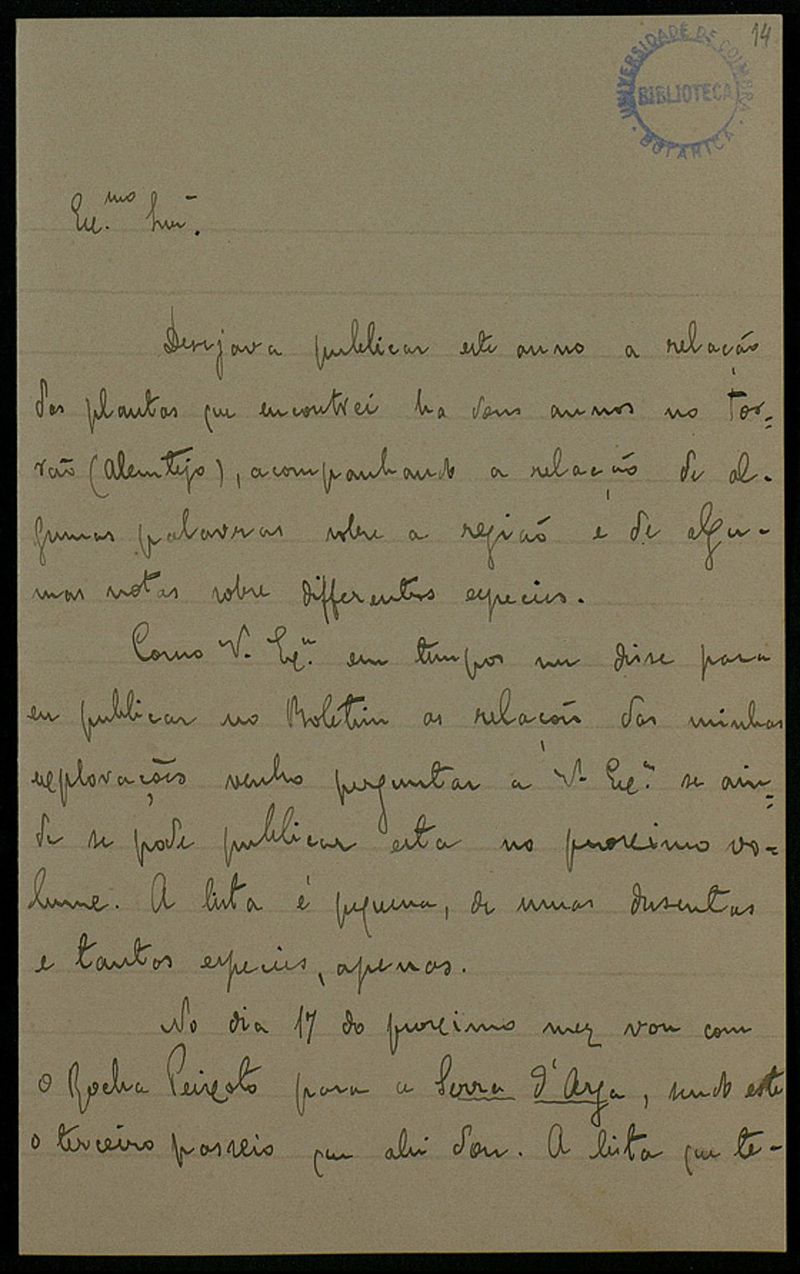 14
UNIVERSIDADE DE COIMBRA
BIBLIOTECA
BOTANICA
Ex.mo Snr.
Desejava publicar este anno a relação
das plantas que encontrei ha dous annos no Tor-
rão (Alemtejo), acompanhando a relação de al-
gumas palavras sobre a região e de algu-
mas notas sobre differentes especies.
Como V. Ex.a em tempos me disse para
eu publicar no Boletim as relações das minhas
explorações venho perguntar a V. Ex.a se ain-
da se pode publicar esta no proximo vo-
lume. A lista é pequena, de umas dusentas
e tantas especies, apenas.
No dia 17 do proximo mez vou com
o Rocha Peixoto para a Serra d'Arga, sendo este
o terceiro passeio que ahi dou. A lista que te-